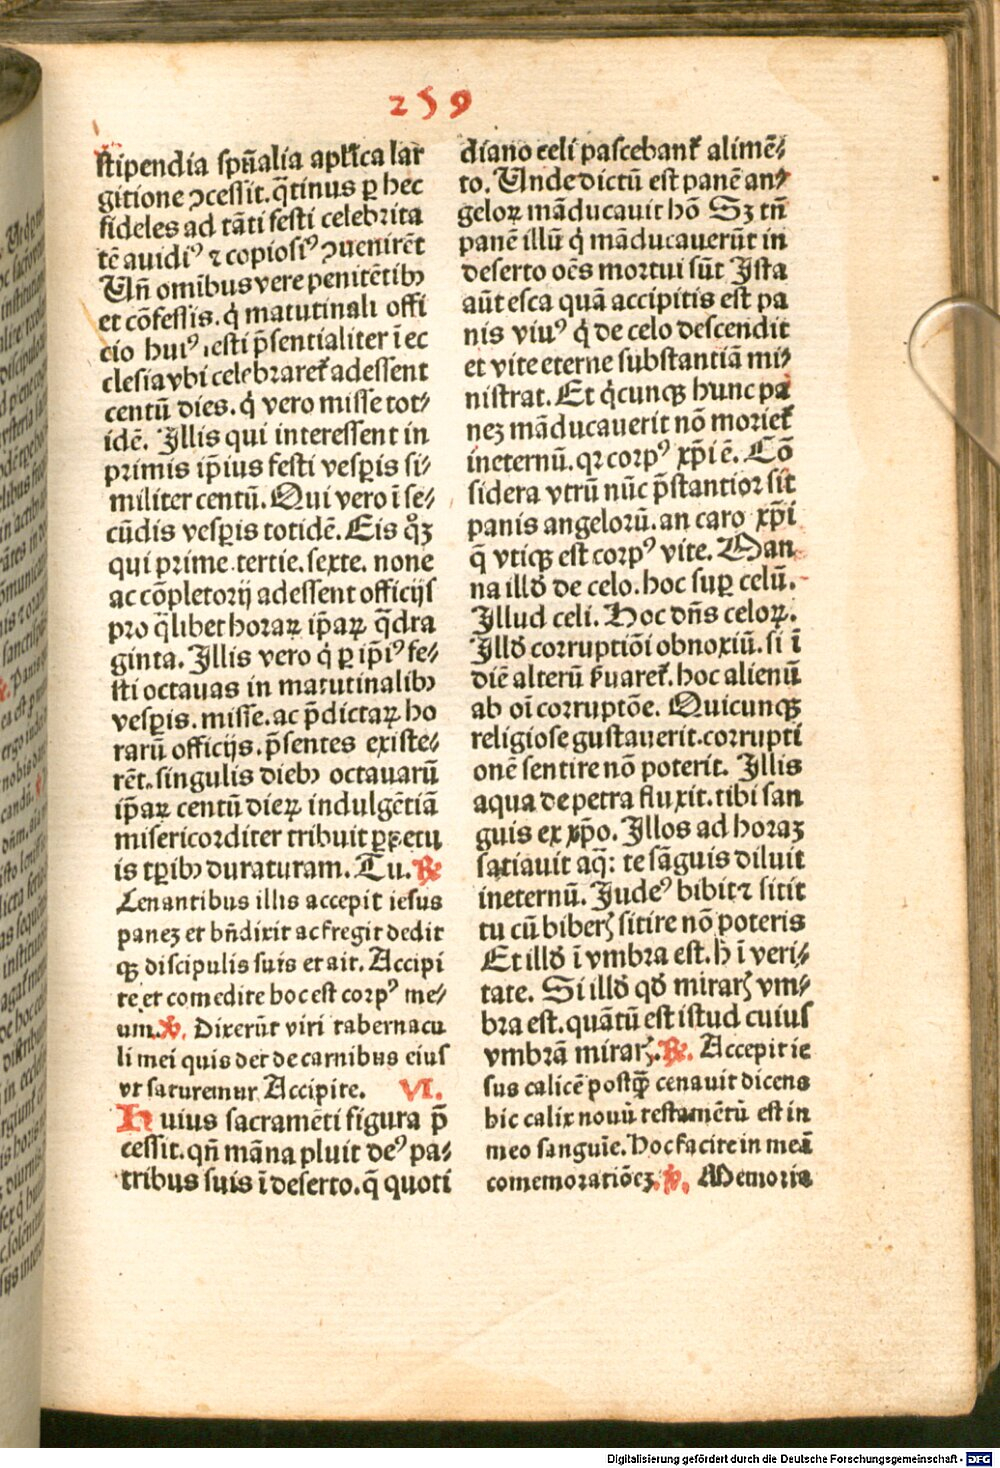 259
stipendia spũalia apl̃ica lar
gitione ↄcessit. q̃tinus ꝑ hec
fideles ad tãti festi celebrita
tẽ auidiꝰ ⁊ copiosiꝰ ↄuenirẽt
Uñ omibus vere penitẽtibꝫ
et cõfessis. q̇ matutinali offi
cio huiꝰ festi p̃sentialiter ĩ ec
clesia vbi celebraret̃ adessent
centũ dies. q̇ vero misse tot⸗
idẽ. Illis qui interessent in
primis ip̃ius festi vesꝑis si⸗
militer centũ. Qui vero ĩ se⸗
cũdis vesꝑis totidẽ. Eis qͦꝫ
qui prime. tertie. sexte. none
ac cõpletorij adessent officijs
pro q̃libet horaꝝ ip̃aꝝ q̃dra
ginta. Illis vero q̇ ꝑ ip̃iꝰ fe⸗
sti octauas in matutinalibꝫ
vesꝑis. misse. ac p̃dictaꝝ ho
rarũ officijs. p̃sentes existe⸗
rẽt. singulis diebꝫ octauarũ
ip̃aꝝ centũ dieꝝ indulgẽtiã
misericorditer tribuit ꝑpetu
is tꝑibꝫ duraturam. Tu. ℟
Cenantibus illis accepit iesus
paneꝫ et bñdixit ac fregit dedit
qꝫ discipulis suis et ait. Accipi
te et comedite hoc est corpꝰ me⸗
um. ℣. Dixerũt viri tabernacu
li mei quis det de carnibus eius
vt saturemur Accipite. VI.
Huius sacramẽti figura p̃
cessit. qñ mãna pluit deꝰ pa⸗
tribus suis ĩ deserto. q̃ quoti
diano celi pascebant̃ alimẽ⸗
to. Unde dictũ est panẽ an⸗
geloꝝ mãducauit hõ Sꝫ tñ
panẽ illũ q̇ mãducauerũt in
deserto oẽs mortui sũt Ista
aũt esca quã accipitis est pa
nis viuꝰ q̇ de celo descendit
et vite eterne substantiã mi⸗
nistrat. Et q̇cunqꝫ hunc pa
neꝫ mãducauerit nõ moriet̃
ineternũ. qꝛ corpꝰ xp̃i ẽ. Cõ
sidera vtrũ nũc p̃stantior sit
panis angelorũ. an caro xp̃i
q̃ vtiqꝫ est corpꝰ vite. Man
na illđ de celo. hoc suꝑ celũ.
Illud celi. Hoc dñs celoꝝ.
Illđ corruptiõi obnoxiũ. si ĩ
diẽ alterũ ẜuaret̃. hoc alienũ
ab oĩ corruptõe. Quicunqꝫ
religiose gustauerit. corrupti
onẽ sentire nõ poterit. Illis
aqua de petra fluxit. tibi san
guis ex xp̃o. Illos ad horaꝫ
satiauit aq̃: te sãguis diluit
ineternũ. Judeꝰ bibit ⁊ sitit
tu cũ biberꝭ sitire nõ poteris
Et illđ ĩ vmbra est. h̃ ĩ veri⸗
tate. Si illđ qđ mirarꝭ vm⸗
bra est. quãtũ est istud cuius
vmbrã mirarꝭ. ℟. Accepit ie
sus calicẽ postqꝫ̃ cenauit dicens
hic calix nouũ testamẽtũ est in
meo sanguĩe. Hoc facite in meã
comemoratiõeꝫ. ℣. Memoria
Digitalisierung gefördert durch die Deutsche Forschungsgemeinschaft - DFG